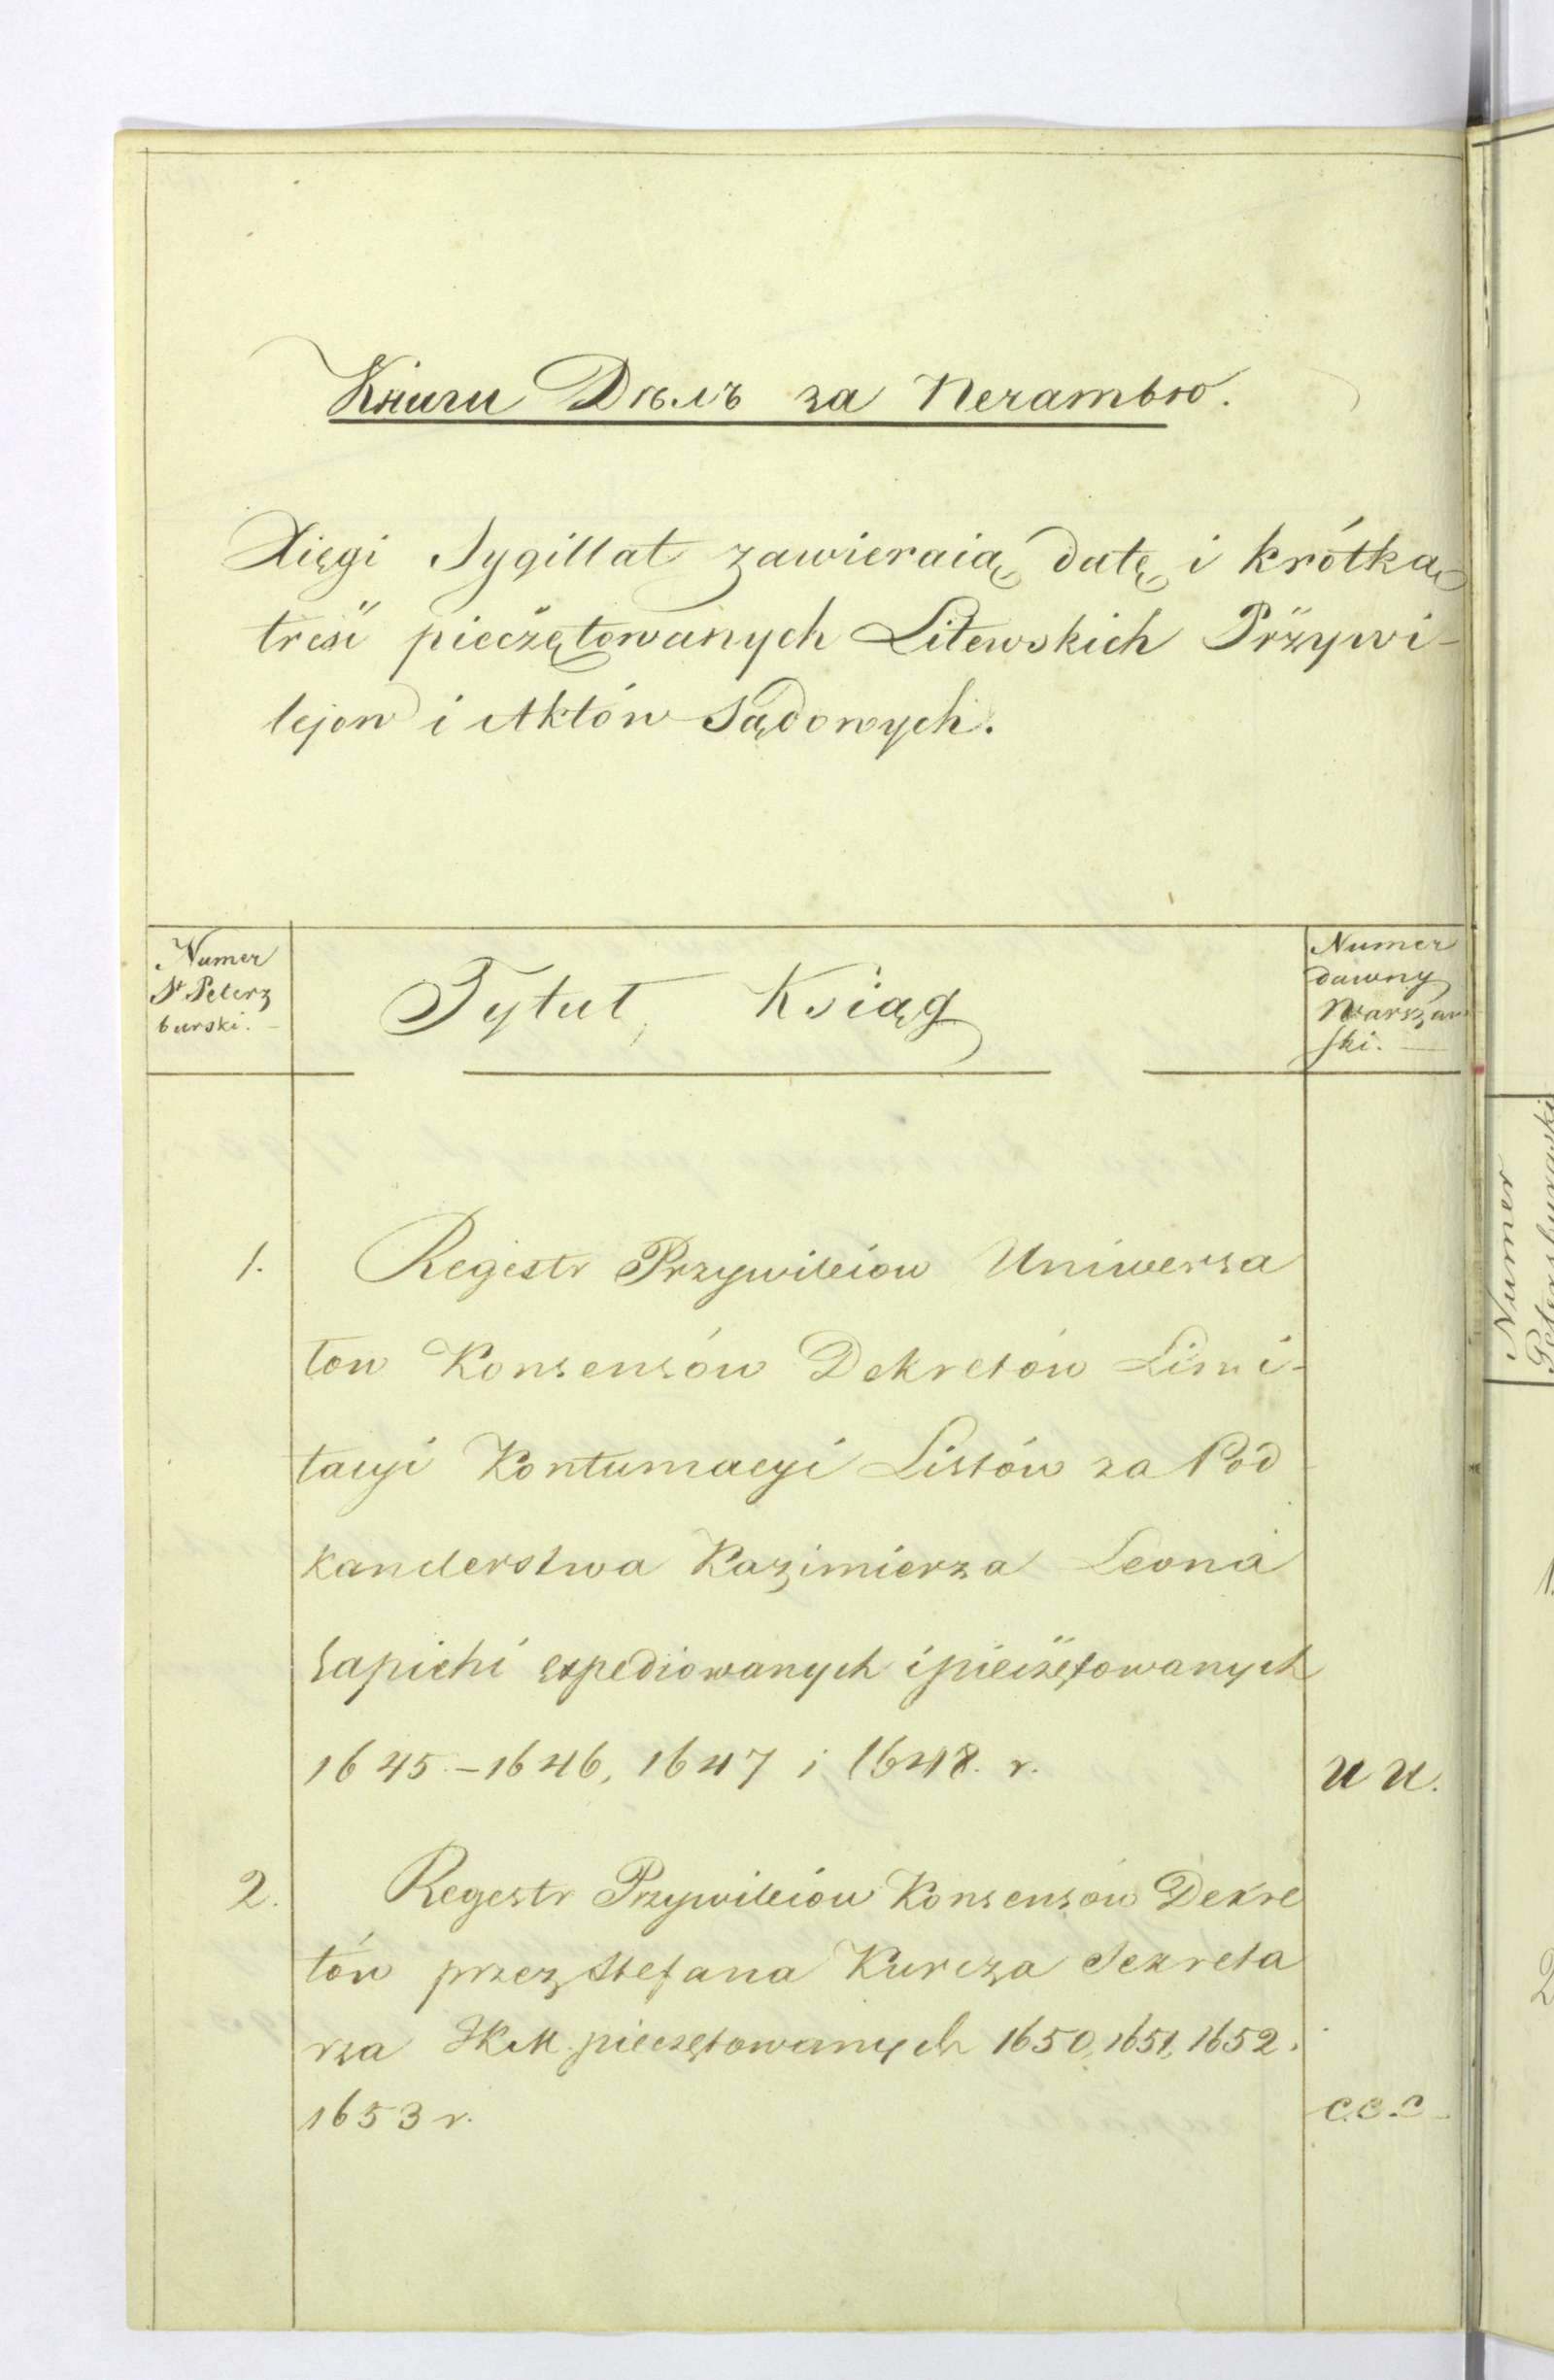 Книги Дѣлъ за Печатью.
Xięgi Sygillat zawieraią datę i krótką
treść pieczętowanych Litewskich Przywi-
lejow i Aktów Sądowych.
Numer
St Peterz
burski.
Tytuł Ksiąg
Numer
dawny
Warszaw
ski.
1. Regestr Przywileiow Uniwersa
łow Konsensów Dekretów Limi-
tacyi Kontumacyi Listów za Pod
kanclerstwa Kazimierza Leona
Sapiehi expediowanych i pieczętowanych
1645.-1646, 1647 i 1648. r. U U.
2. Regestr Przywileiow Konsensów Dekre
tów przez Stefana Kurcza Sekreta
rza JKM. pieczętowanych 1650, 1651, 1652.
1653 r. C.C.C
Numer
Petersburgski
1.
2